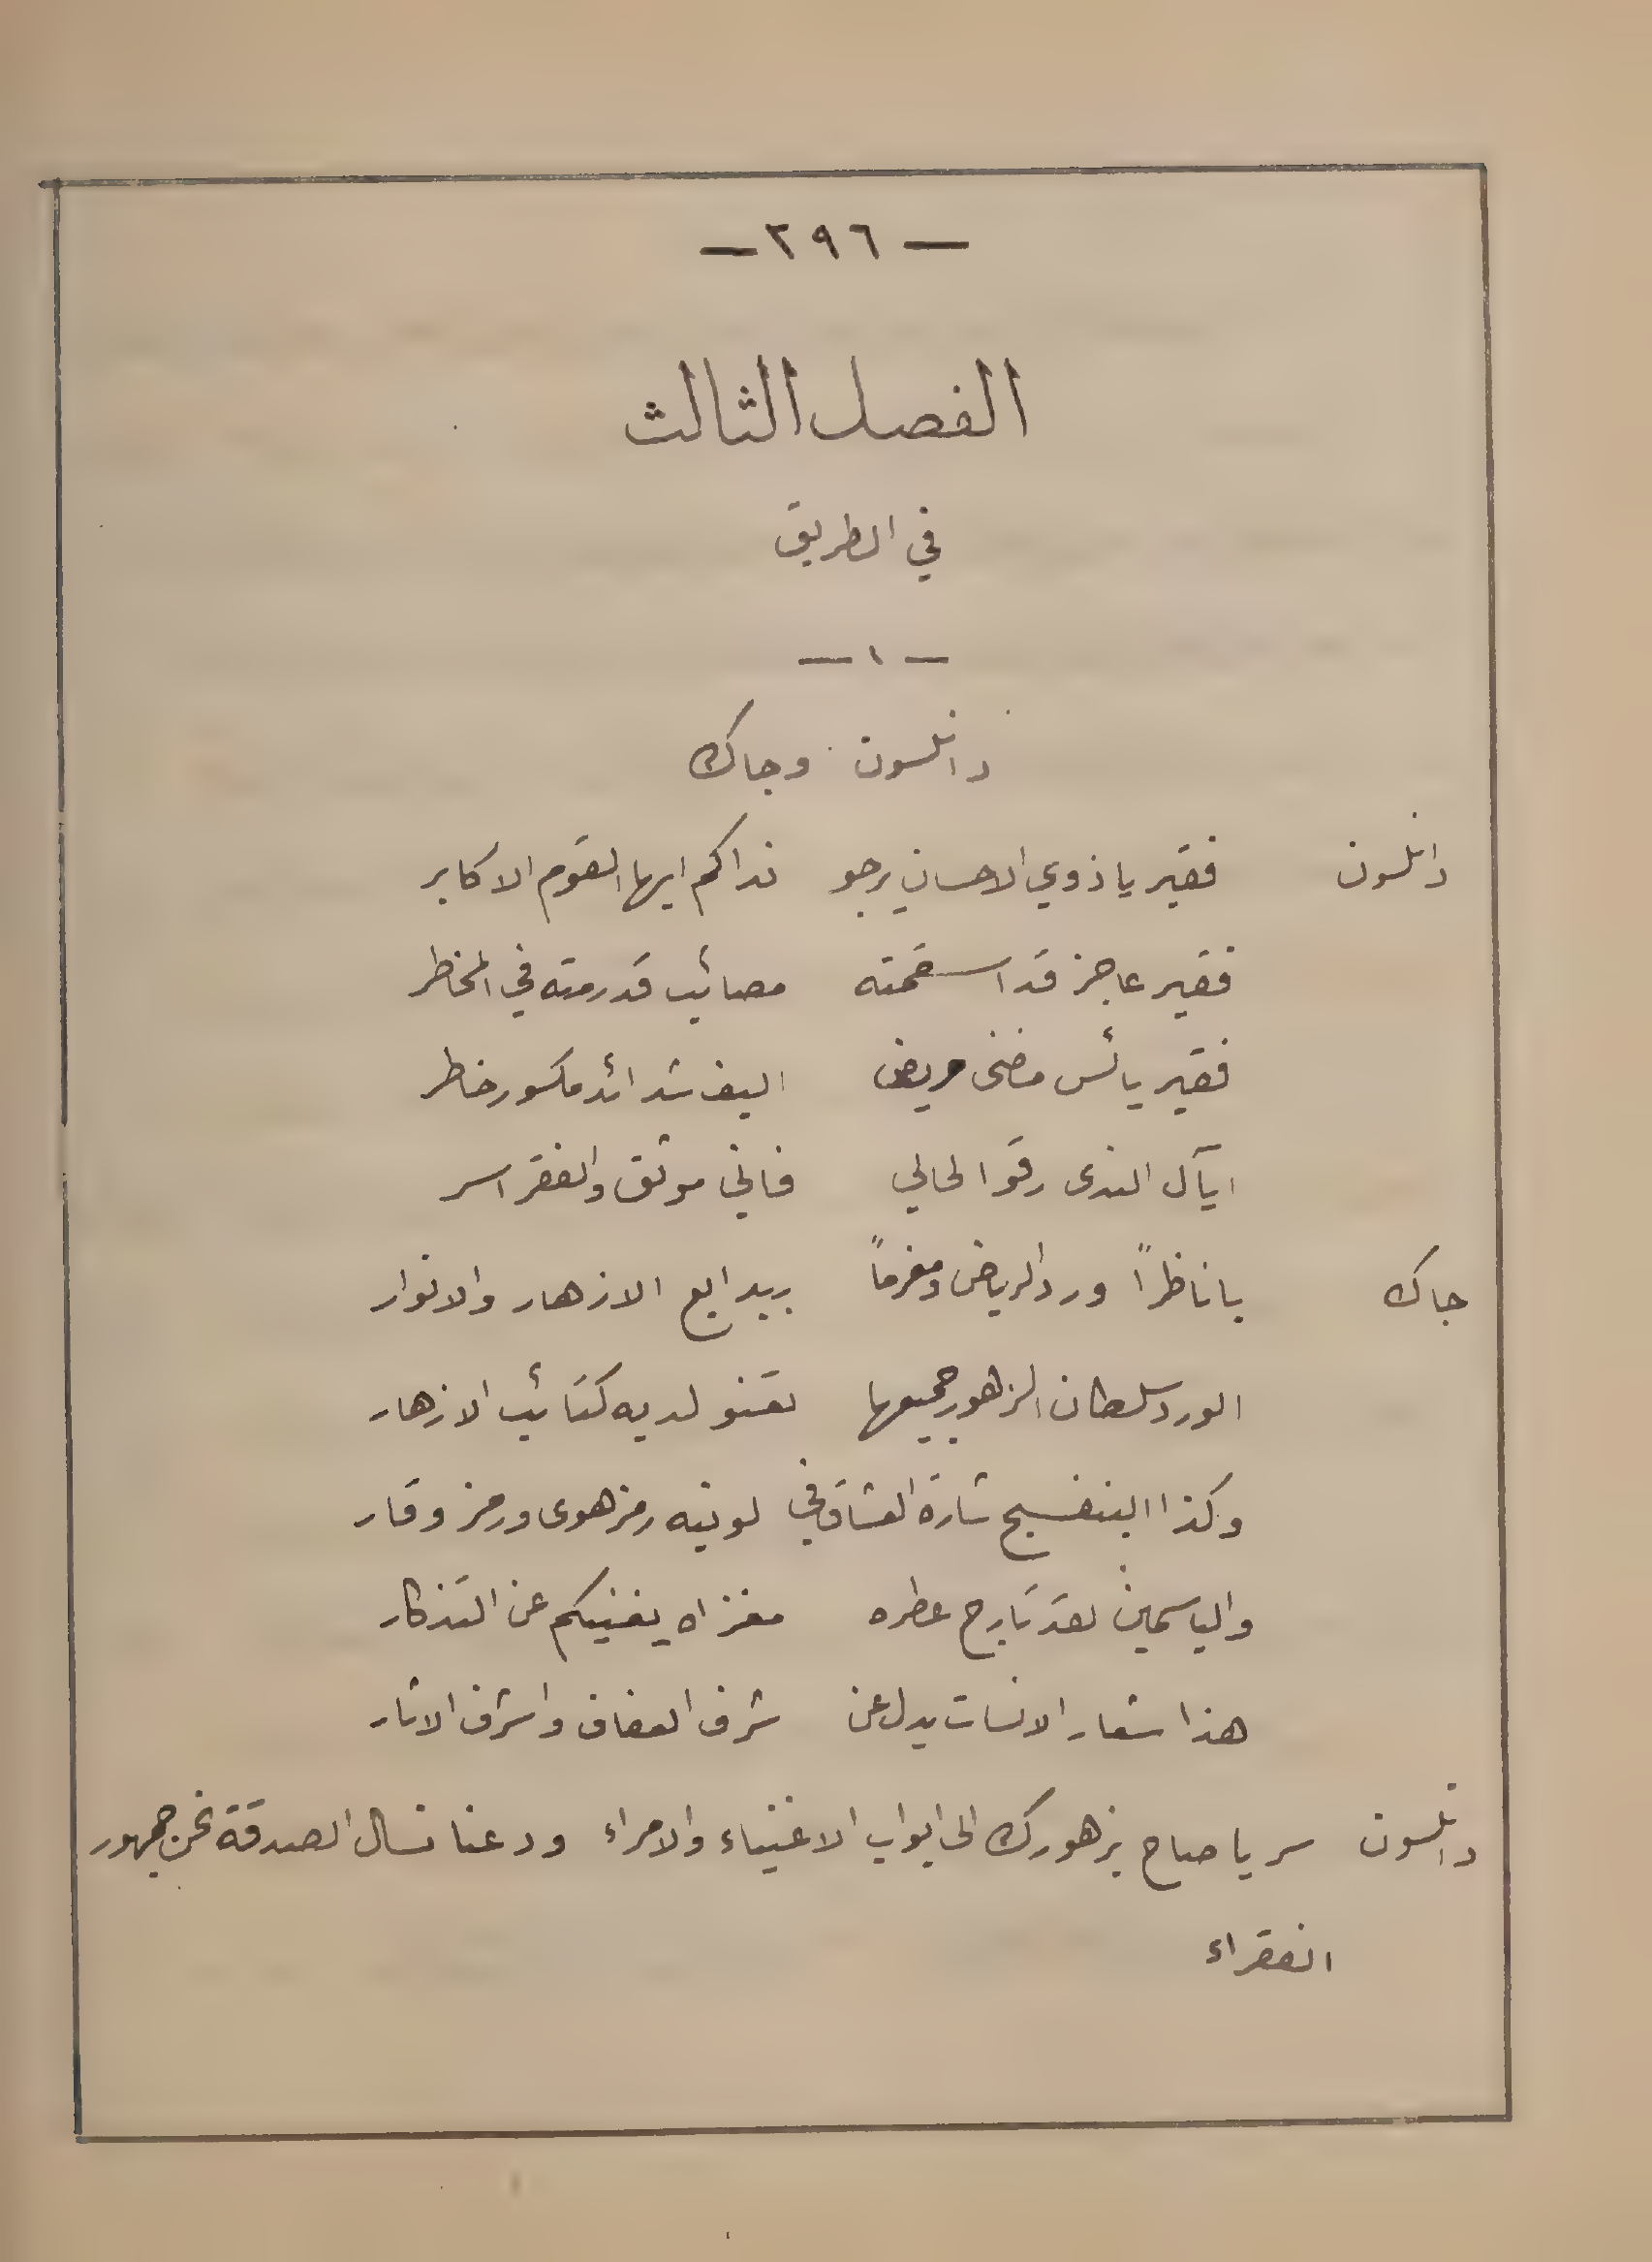 — ٢٩٦ —
الفصل الثالث
في الطريق
— ١ —
دانلسون وجاك
دانلسون فقير يا ذوي الاحسان يرجو نداكم ايها القوم الاكابر
فقير عاجز قد اسقمته مصائب قد رمته في المخاطر
فقير يائس مضنى مريض اليف شدائد مكسور خاطر
ايآل الندى رقوا لحالي فاني موثق والفقر اسر
جاك يا ناظراً ورد الرياض ومغرماً ببدايع الازهار والانوار
الورد سلطان الزهور جميعها تعنو لديه كتائب الازهار
وكذا البنفسج شارة العشاق في لونيه رمز هوى ورمز وقار
والياسمين لقد تارج عطره مغزاه يغنيكم عن التذكار
هذا شعار الانسات يدل عن شرف العفاف واشرف الاثار
دانلسون سر يا صاح بزهورك الى ابواب الاغنياء والامراء ودعنا نسال الصدقة نحن جمهور
الفقراء